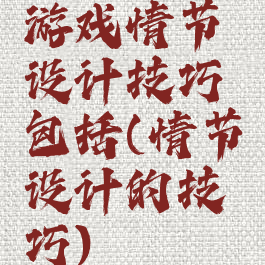 游戏情节
设计技巧
包括(情节
设计的技
巧)